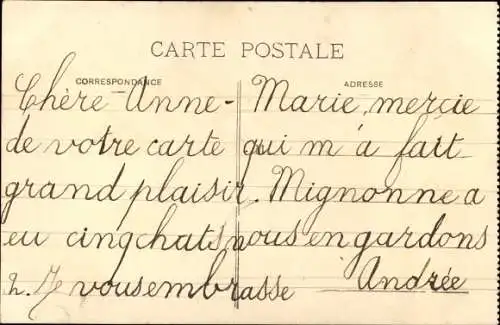 CARTE POSTALE
CORRESPONDANCE ADRESSE
Chère Anne-Marie, mercie
de votre carte qui m'a fait
grand plaisir. Mignonne a
eu cinq chats, nous en gardons
2. Je vous embrasse Andrée